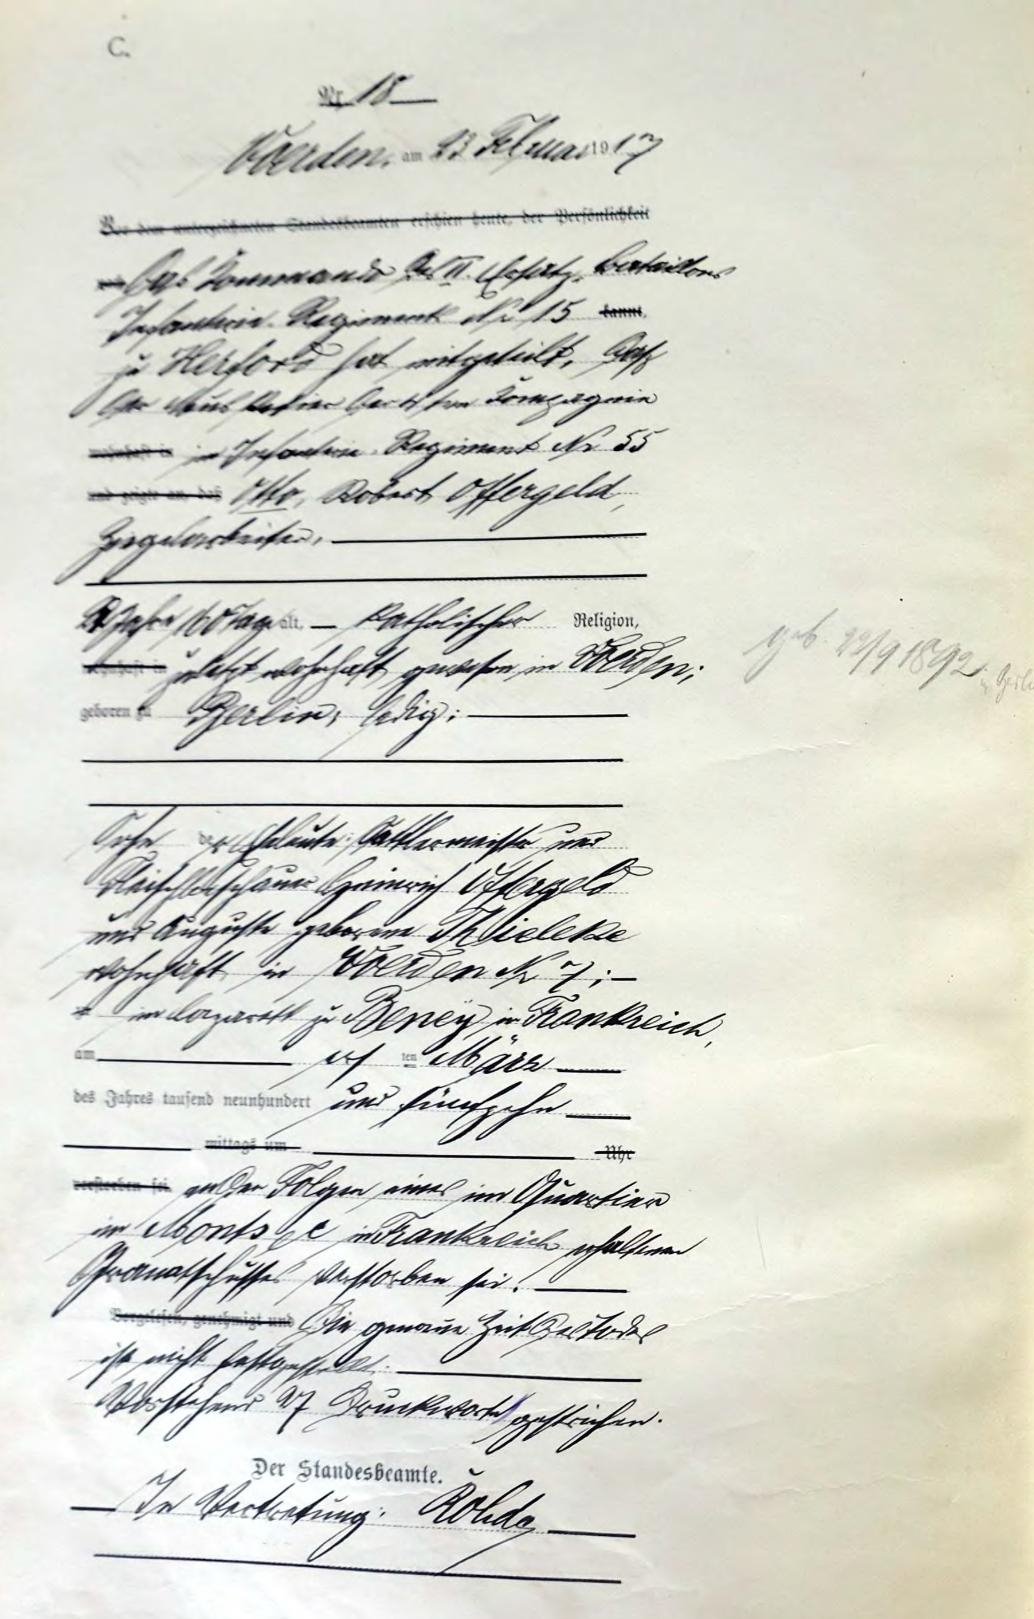 C.
Nr. 18
Voerden, am 23 Februar 1917
Vor dem unterzeichneten Standesbeamten erschien heute, der Persönlichkeit
Das Kommando des II. Ersatz-Bataillons
Infanterie-Regiment Nr 15 kannt,
zu Herford hat mitgeteilt, daß
der Musketier der ten Kompagnie
wohnhaft in im Infanterie-Regiment Nr 55
und zeigte an, daß Otto, Robert Offergeld,
Ziegelarbeiter,
Jahre 160 Tage alt, katholischer Religion,
wohnhaft in zuletzt wohnhaft gewesen in Voerden;
geb. 22/9 1892 in
geboren zu Berlin; ledig;
Sohn der Eheleute: Sattlermeister und
Fleischbeschauer Heinrich Offergeld
und Auguste geborene Thieleke
wohnhaft in Voerden Nr 7;
im Lazarett zu Beney in Frankreich,
am elf ten März
des Jahres tausend neunhundert und fünfzehn
mittags um Uhr
verstorben sei, an den Folgen eines im Quartier
in Monts in Frankreich erhaltenen
Granatschusses verstorben sei.
Vorgelesen, genehmigt und Die genaue Zeit des Todes
ist nicht festgestellt.
Vorstehend 27 Druckworte gestrichen.
Der Standesbeamte.
In Vertretung: